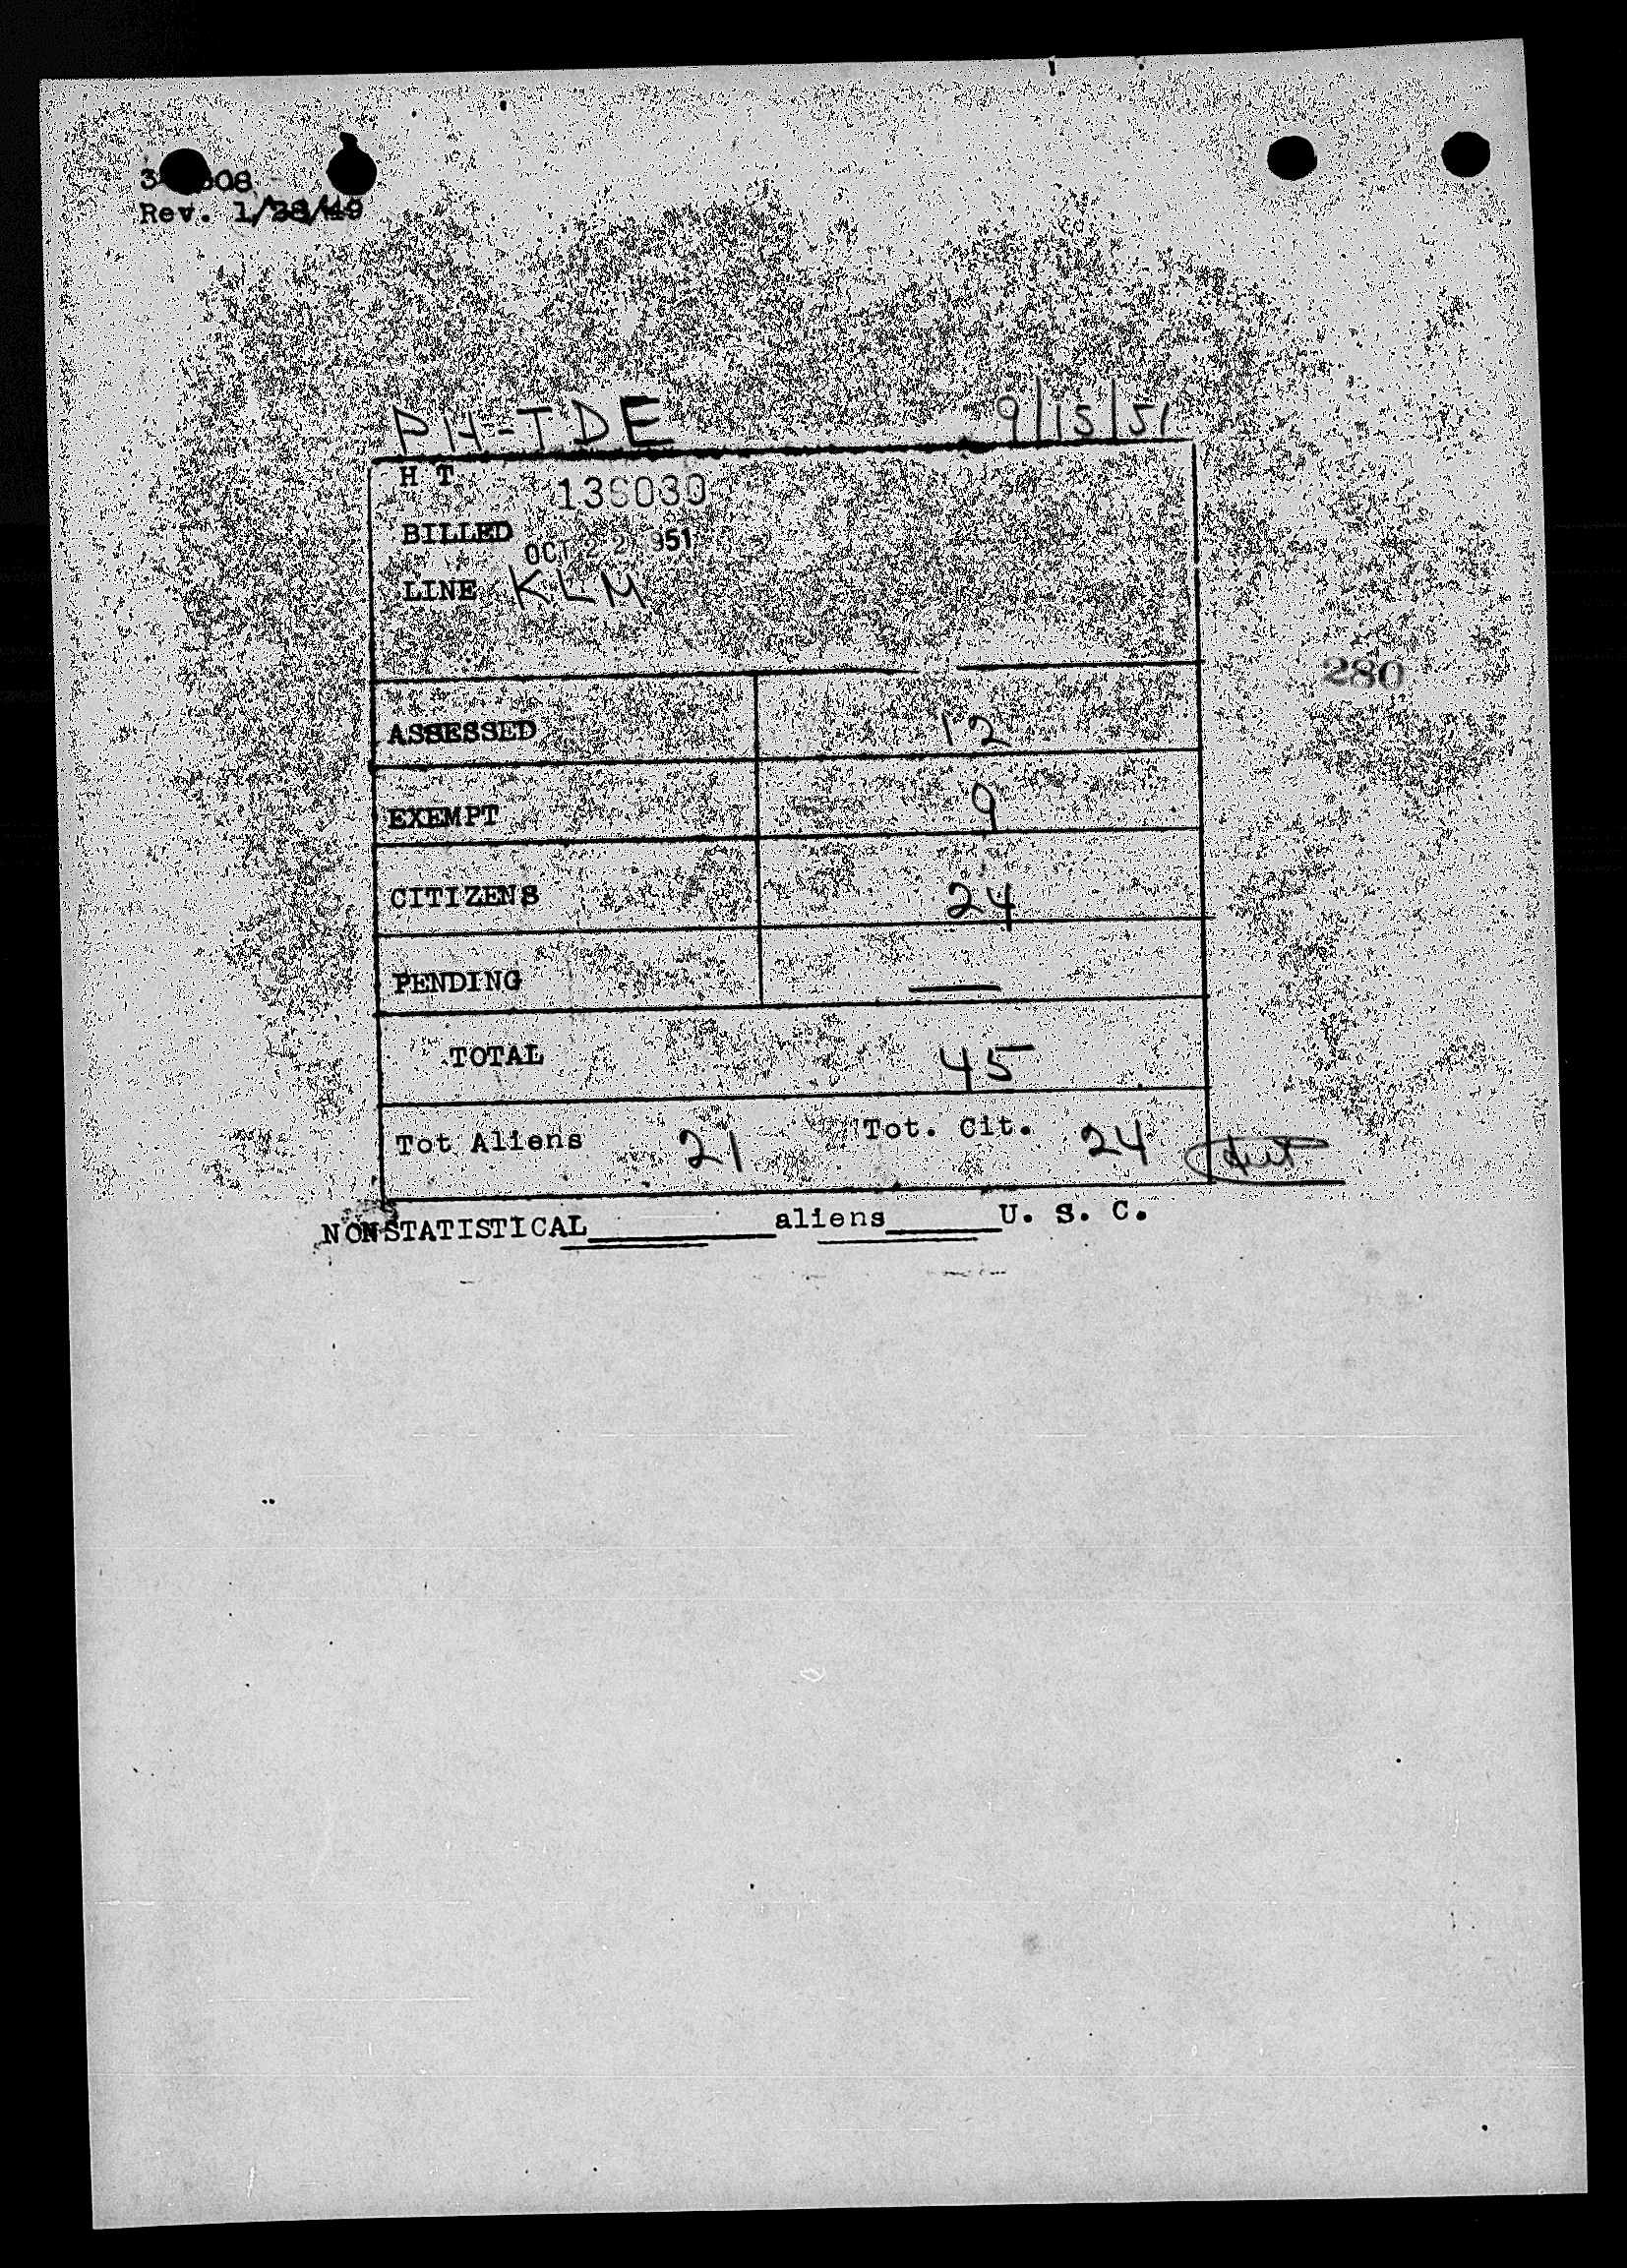 Rev. 1/28/49
PH-TDE 9/15/51
H T 136030
BILLED OCT 22 1951
LINE KLM
280
ASSESSED 12
EXEMPT 9
CITIZENS 24
PENDING —
TOTAL 45
Tot Aliens 21 Tot. Cit. 24
NONSTATISTICAL__________aliens______U. S. C.